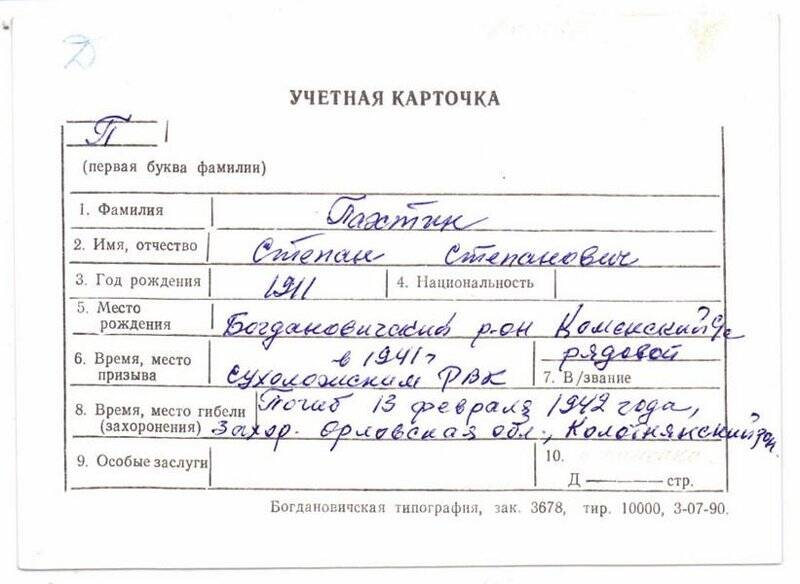 Д
УЧЕТНАЯ КАРТОЧКА
П
(первая буква фамилии)
1. Фамилия Пахтин
2. Имя, отчество Степан Степанович
3. Год рождения 1911 4. Национальность
5. Место рождения Богдановический р-он Каменский
6. Время, место призыва в 1941 г Сухоложским РВК
рядовой
7. В/звание
8. Время, место гибели (захоронения) Погиб 13 февраля 1942 года,
Захор. Орловская обл., Колотнянский
9. Особые заслуги
10.
Д стр.
Богдановичская типография, зак. 3678, тир. 10000, 3-07-90.